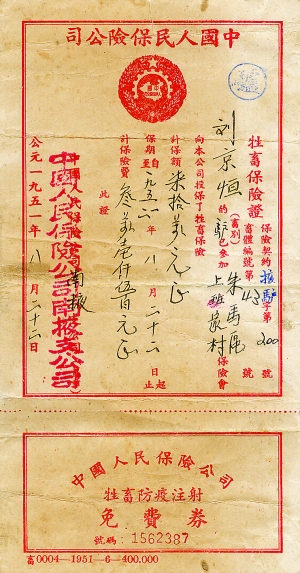 中國人民保險公司
牲畜保險證
保險契約掖駝字第200號
畜體編號第43號
朱馬區
上班家村保險會
劉京恒
(畜別)的駝已參加
向本公司投保了牲畜保險
計保額柒拾萬元正
保期自一九五一年八月二十二日起止
計保險費叁萬壹仟伍百元正
此證
中國人民保險公司南掖支公司
公元一九五一年八月二十二日
中國人民保險公司
牲畜防疫注射
免費券
號碼:1562387
畜0004—1951—6—400.000